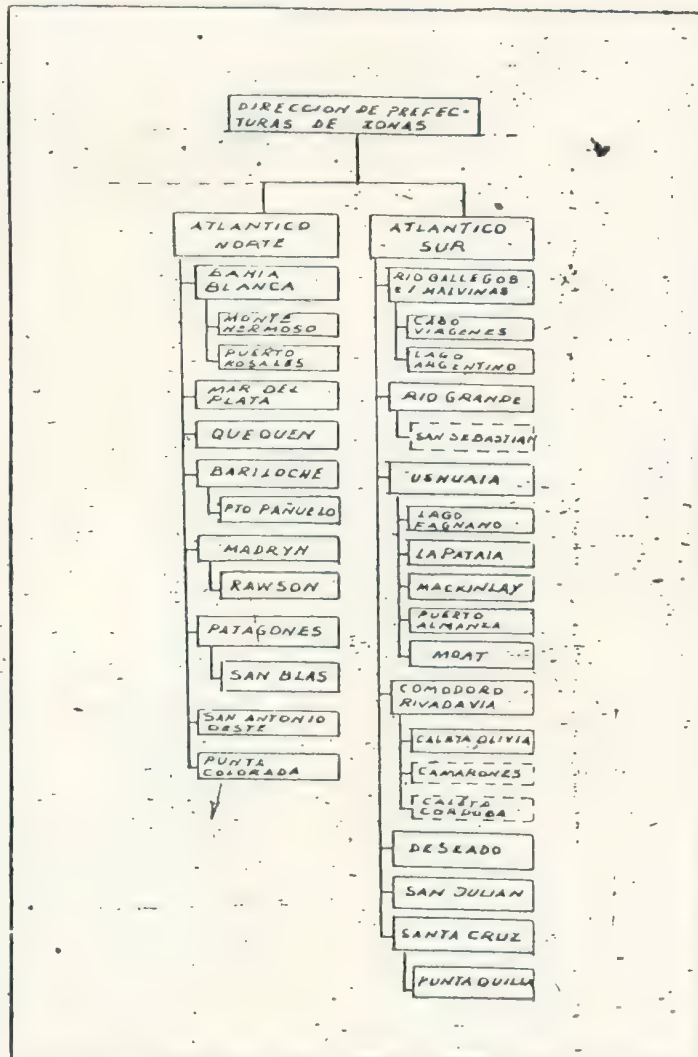 DIRECCION DE PREFEC-
TURAS DE ZONAS
ATLANTICO
NORTE
BAHIA
BLANCA
MONTE
HERMOSO
PUERTO
ROSALES
MAR DEL
PLATA
QUEQUEN
BARILOCHE
PTO PAÑUELO
MADRYN
RAWSON
PATAGONES
SAN BLAS
SAN ANTONIO
OESTE
PUNTA
COLORADA
ATLANTICO
SUR
RIO GALLEGOS
e I MALVINAS
CABO
VIRGENES
LAGO
ARGENTINO
RIO GRANDE
SAN SEBASTIAN
USHUAIA
LAGO
FAGNANO
LAPATAIA
MACKINLAY
PUERTO
ALMANZA
MOAT
COMODORO
RIVADAVIA
CALETA OLIVIA
CAMARONES
CALETA
CORDOBA
DESEADO
SAN JULIAN
SANTA CRUZ
PUNTA QUILLA